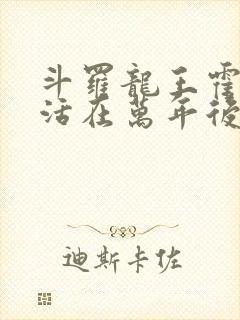 斗羅龍王霍
活在萬年後
迪斯卡佐